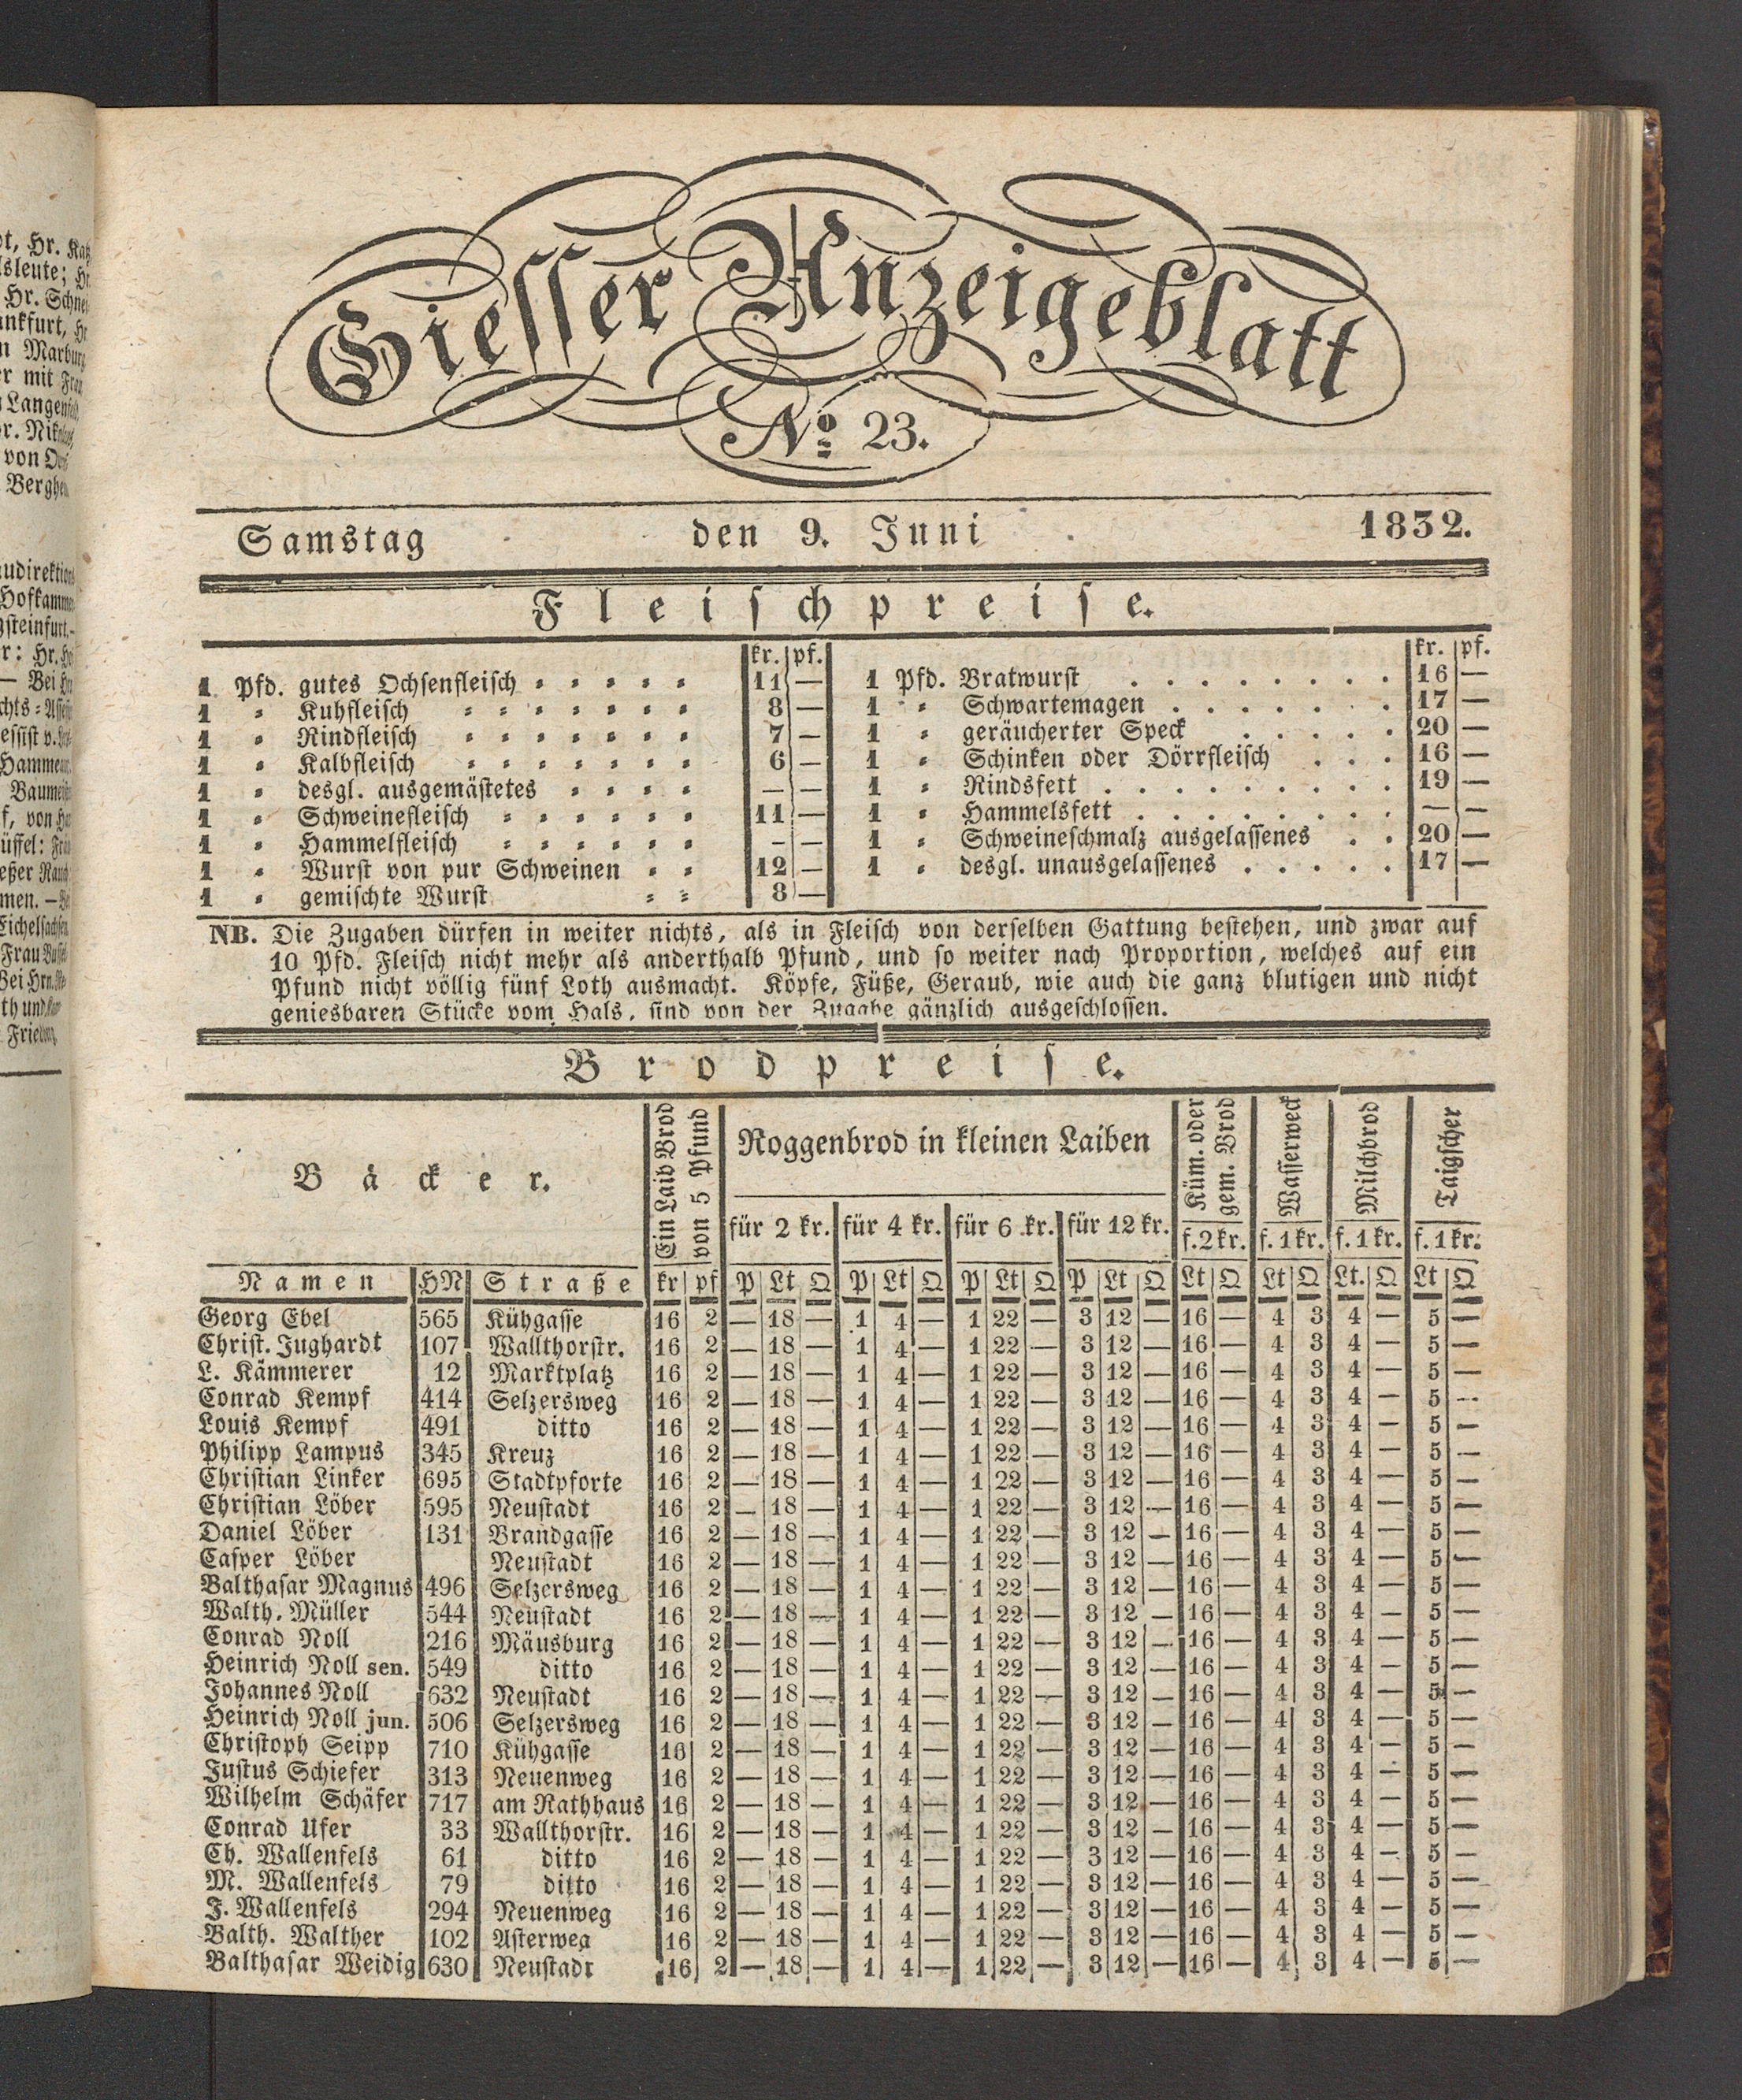 Giesser Anzeigeblatt
No. 23.
Samstag den 9. Juni 1832.
Fleischpreise.
kr. pf.
1 Pfd. gutes Ochsenfleisch 11 —
1 " Kuhfleisch 8 —
1 " Rindfleisch 7 —
1 " Kalbfleisch 6 —
1 " desgl. ausgemästetes — —
1 " Schweinefleisch 11 —
1 " Hammelfleisch — —
1 " Wurst von pur Schweinen 12 —
1 " gemischte Wurst 8 —
kr. pf.
1 Pfd. Bratwurst 16 —
1 " Schwartemagen 17 —
1 " geräucherter Speck 20 —
1 " Schinken oder Dörrfleisch 16 —
1 " Rindsfett 19 —
1 " Hammelsfett — —
1 " Schweineschmalz ausgelassenes 20 —
1 " desgl. unausgelassenes 17 —
NB. Die Zugaben dürfen in weiter nichts, als in Fleisch von derselben Gattung bestehen, und zwar auf
10 Pfd. Fleisch nicht mehr als anderthalb Pfund, und so weiter nach Proportion, welches auf ein
Pfund nicht völlig fünf Loth ausmacht. Köpfe, Füße, Geraub, wie auch die ganz blutigen und nicht
geniesbaren Stücke vom Hals, sind von der Zugabe gänzlich ausgeschlossen.
Brodpreise.
Bäcker.
Ein Laib Brod
von 5 Pfund
Roggenbrod in kleinen Laiben
für 2 kr. für 4 kr. für 6 kr. für 12 kr.
Küm. oder
gem. Brod
f. 2 kr.
Wasserweck
f. 1 kr.
Milchbrod
f. 1 kr.
Taigscher
f. 1 kr.
Namen HN Straße kr pf P Lt Q P Lt Q P Lt Q P Lt Q Lt Q Lt Q Lt. Q Lt Q
Georg Ebel 565 Kühgasse 16 2 — 18 — 1 4 — 1 22 — 3 12 — 16 — 4 3 4 — 5 —
Christ. Jughardt 107 Wallthorstr. 16 2 — 18 — 1 4 — 1 22 — 3 12 — 16 — 4 3 4 — 5 —
L. Kämmerer 12 Marktplatz 16 2 — 18 — 1 4 — 1 22 — 3 12 — 16 — 4 3 4 — 5 —
Conrad Kempf 414 Selzersweg 16 2 — 18 — 1 4 — 1 22 — 3 12 — 16 — 4 3 4 — 5 —
Louis Kempf 491 ditto 16 2 — 18 — 1 4 — 1 22 — 3 12 — 16 — 4 3 4 — 5 —
Philipp Lampus 345 Kreuz 16 2 — 18 — 1 4 — 1 22 — 3 12 — 16 — 4 3 4 — 5 —
Christian Linker 695 Stadtpforte 16 2 — 18 — 1 4 — 1 22 — 3 12 — 16 — 4 3 4 — 5 —
Christian Löber 595 Neustadt 16 2 — 18 — 1 4 — 1 22 — 3 12 — 16 — 4 3 4 — 5 —
Daniel Löber 131 Brandgasse 16 2 — 18 — 1 4 — 1 22 — 3 12 — 16 — 4 3 4 — 5 —
Casper Löber Neustadt 16 2 — 18 — 1 4 — 1 22 — 3 12 — 16 — 4 3 4 — 5 —
Balthasar Magnus 496 Selzersweg 16 2 — 18 — 1 4 — 1 22 — 3 12 — 16 — 4 3 4 — 5 —
Walth. Müller 544 Neustadt 16 2 — 18 — 1 4 — 1 22 — 3 12 — 16 — 4 3 4 — 5 —
Conrad Noll 216 Mäusburg 16 2 — 18 — 1 4 — 1 22 — 3 12 — 16 — 4 3 4 — 5 —
Heinrich Noll sen. 549 ditto 16 2 — 18 — 1 4 — 1 22 — 3 12 — 16 — 4 3 4 — 5 —
Johannes Noll 632 Neustadt 16 2 — 18 — 1 4 — 1 22 — 3 12 — 16 — 4 3 4 — 5 —
Heinrich Noll jun. 506 Selzersweg 16 2 — 18 — 1 4 — 1 22 — 3 12 — 16 — 4 3 4 — 5 —
Christoph Seipp 710 Kühgasse 16 2 — 18 — 1 4 — 1 22 — 3 12 — 16 — 4 3 4 — 5 —
Justus Schiefer 313 Neuenweg 16 2 — 18 — 1 4 — 1 22 — 3 12 — 16 — 4 3 4 — 5 —
Wilhelm Schäfer 717 am Rathhaus 16 2 — 18 — 1 4 — 1 22 — 3 12 — 16 — 4 3 4 — 5 —
Conrad Ufer 33 Wallthorstr. 16 2 — 18 — 1 4 — 1 22 — 3 12 — 16 — 4 3 4 — 5 —
Ch. Wallenfels 61 ditto 16 2 — 18 — 1 4 — 1 22 — 3 12 — 16 — 4 3 4 — 5 —
M. Wallenfels 79 ditto 16 2 — 18 — 1 4 — 1 22 — 3 12 — 16 — 4 3 4 — 5 —
J. Wallenfels 294 Neuenweg 16 2 — 18 — 1 4 — 1 22 — 3 12 — 16 — 4 3 4 — 5 —
Balth. Walther 102 Asterweg 16 2 — 18 — 1 4 — 1 22 — 3 12 — 16 — 4 3 4 — 5 —
Balthasar Weidig 630 Neustadt 16 2 — 18 — 1 4 — 1 22 — 3 12 — 16 — 4 3 4 — 5 —